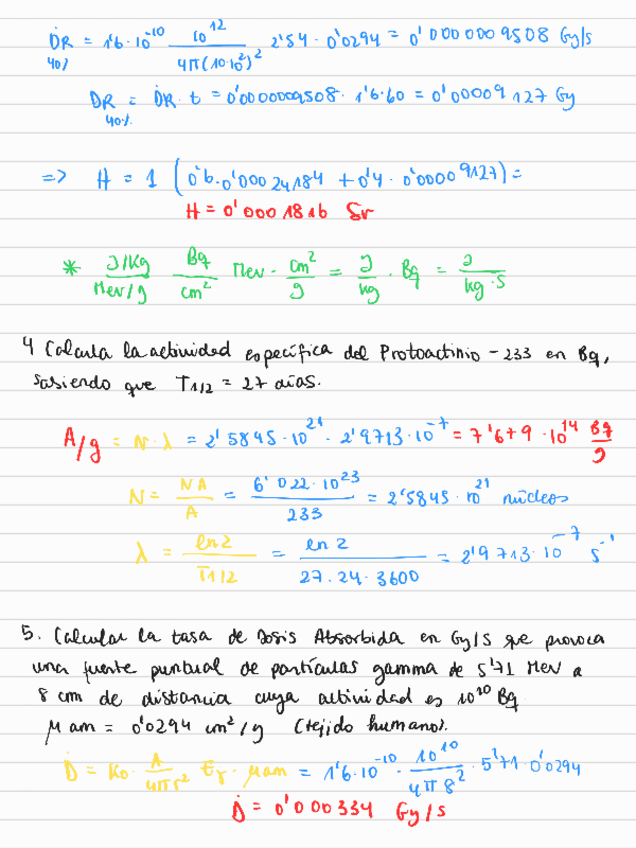 ḊR = 1'6·10⁻¹⁰ 10¹²/4π(10·10²)² 2'54·0'0294 = 0'0000009508 Gy/s
40%
DR = ḊR·t = 0'0000009508·1'6·60 = 0'00009127 Gy
40%
=> H = 1 (0'6·0'00024184 + 0'4·0'00009127) =
H = 0'0001816 Sv
* J/Kg / MeV/g Bq/cm² MeV·cm²/g = J/kg·Bq = J/kg·s
4 Calcula la actividad específica del Protoactinio-233 en Bq,
sabiendo que T1/2 = 27 días.
A/g = N·λ = 2'5845·10²¹·2'9713·10⁻⁷ = 7'679·10¹⁴ Bq/g
N = NA/A = 6'022·10²³/233 = 2'5845·10²¹ núcleos
λ = ln2/T1/2 = ln 2/27·24·3600 = 2'9713·10⁻⁷ s⁻¹
5. Calcular la tasa de Dosis Absorbida en Gy/s que provoca
una fuente puntual de partículas gamma de 5'71 MeV a
8 cm de distancia cuya actividad es 10¹⁰ Bq
μ am = 0'0294 cm²/g (tejido humano).
Ḋ = K0·A/4πr² Eγ·μam = 1'6·10⁻¹⁰·10¹⁰/4π8²·5'71·0'0294
Ḋ = 0'000334 Gy/s